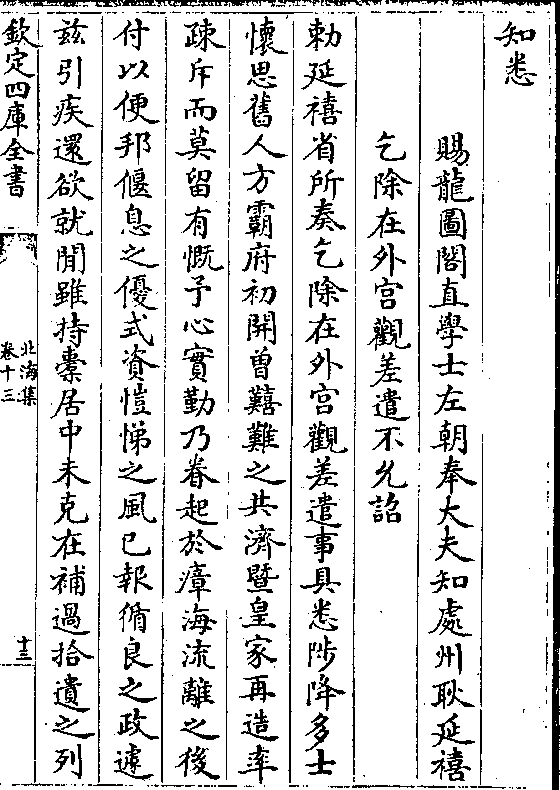 知悉
賜龍圖閣直學士左朝奉大夫知處州耿延禧
乞除在外宫觀差遣不允詔
勅延禧省所奏乞除在外宫觀差遣事具悉陟降多士
懷思舊人方霸府初開曽囏難之共濟暨皇家再造率
疎斥而莫留有慨予心實勤乃眷起於瘴海流離之後
付以便邦偃息之優式資愷悌之風已報循良之政遽
兹引疾還欲就閒雖持橐居中未克在補過拾遺之列
欽定四庫全書
北海集
卷十三
十三